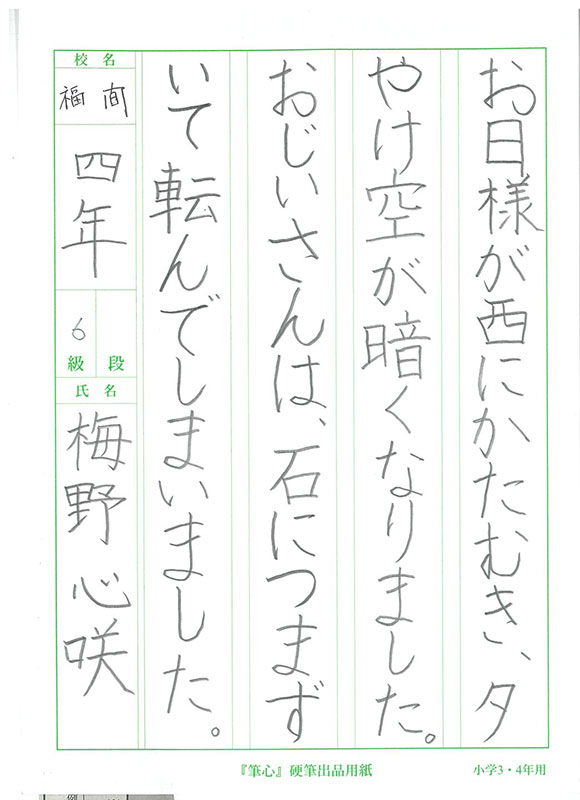 お日様が西にかたむき、夕
やけ空が暗くなりました。
おじいさんは、石につまず
いて転んでしまいました。
校名
福間
四年
6
級 段
氏名
梅野心咲
『筆心』硬筆出品用紙
小学3・4年用